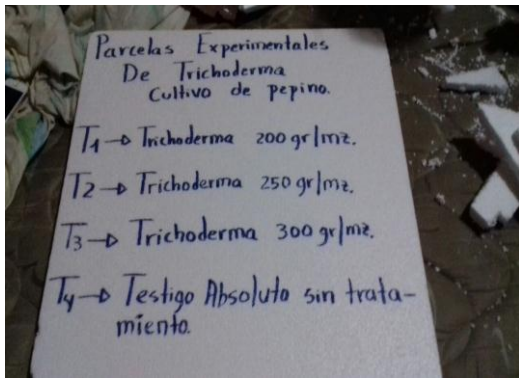 Parcelas Experimentales
De Trichoderma
Cultivo de pepino.
T1→ Trichoderma 200 gr/mz.
T2→ Trichoderma 250 gr/mz.
T3→ Trichoderma 300 gr/mz.
T4→ Testigo Absoluto sin trata-
miento.